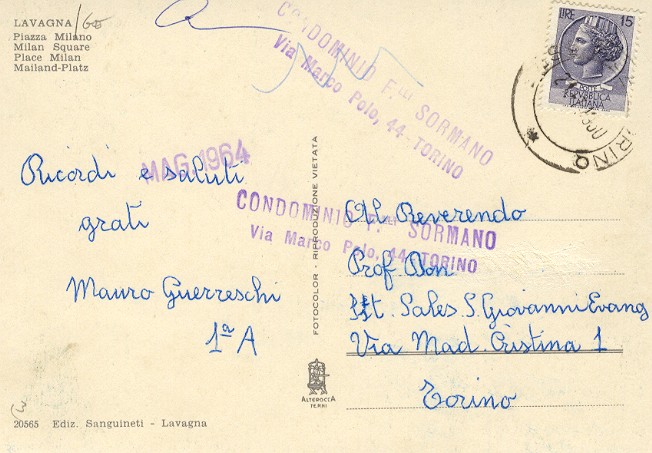 LAVAGNA/60
Piazza Milano
Milan Square
Place Milan
Mailand-Platz
CONDOMINIO F.lli SORMANO
Via Marco Polo, 44 - TORINO
LIRE 15
POSTE
REPVBBLICA
ITALIANA
TORINO
MAG. 1964
Ricordi e saluti
grati
Mauro Guerreschi
1ª A
CONDOMINIO F.lli SORMANO
Via Marco Polo, 44 - TORINO
FOTOCOLOR - RIPRODUZIONE VIETATA
Al Reverendo
Prof. Don
Ist. Sales S. Giovanni Evang
Via Mad. Cristina 1
Torino
ALTEROCCA
TERNI
20565 Ediz. Sanguineti - Lavagna